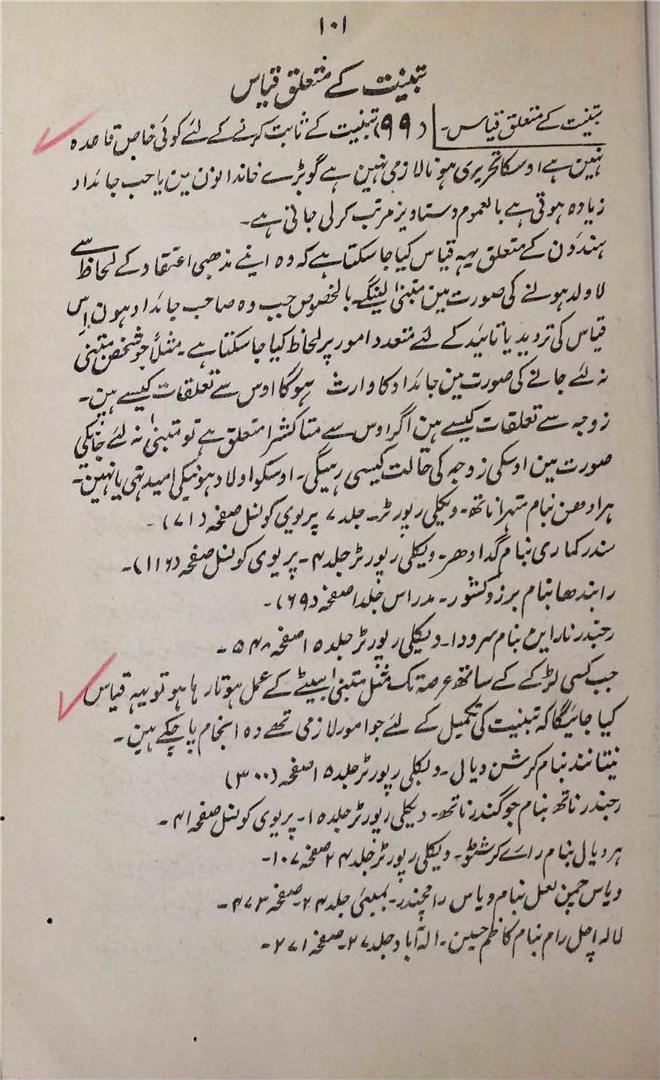 ۱۰۱
تبنیت کے متعلق قیاس
تبنیت کے متعلق قیاس۔ (۹۹) تبنیت کے ثابت کرنے کے لئے کوئی خاص قاعدہ
نہین ہے اوسکا تحریری ہونا لازمی نہین ہے گو بڑے خاندانون مین یا جب جائداد
زیادہ ہوتی ہے بالعموم دستاویز مرتب کر لی جاتی ہے۔
ہندؤن کے متعلق یہہ قیاس کیا جا سکتا ہے کہ وہ اپنے مذھبی اعتقاد کے لحاظ سے
لا ولد ہونے کی صورت مین متبنیٰ لینگے۔ بالخصوص جب وہ صاحب جائداد ہون اِس
قیاس کی تردید یا تائید کے لئے متعدد امور پر لحاظ کیا جا سکتا ہے۔ مثلاً جو شخص متبنیٰ
نہ لئے جانے کی صورت مین جائداد کا وارث ہوگا اوس سے تعلقات کیسے ہین۔
زوجہ سے تعلقات کیسے ہین اگر اوس سے مناکشرا متعلق ہے تو متبنیٰ نہ لئے جانیکی
صورت مین اوسکی زوجہ کی حالت کیسی رہیگی۔ اوسکو اولاد ہونیکی امید تہی یا نہین۔
ہرادھن بنام متہرا ناتھ۔ ویکلی رپورٹر۔ جلد ۷ پریوی کونسل صفحہ (۷۱)۔
سندر کماری بنام گدادھر۔ ویکلی رپورٹر جلد ۴۔ پریوی کونسل صفحہ (۱۱۶)۔
رابندھا بنام برزوکشور۔ مدراس جلد۱ صفحہ (۶۹)۔
رجندر نارائن بنام سرودا۔ ویکلی رپورٹر جلد ۱۵ صفحہ ۵۴۸۔
جب کسی لڑکے کے ساتھ عرصہ تک مثل متبنیٰ بیٹے کے عمل ہوتا رہا ہو تو یہہ قیاس
کیا جائیگا کہ تبنیت کی تکمیل کے لئے جو امور لازمی تھے وہ انجام پا چکے ہین۔
نیتانند بنام کرشن دیال۔ ویکلی رپورٹر جلد ۱۵ صفحہ (۳۰۰)
رجندر ناتھ بنام جوگندر ناتھ۔ ویکلی رپورٹر جلد ۱۵۔ پریوی کونسل صفحہ ۴۱۔
ہر دیال بنام راے کرشٹو۔ ویکلی رپورٹر جلد ۲۴ صفحہ ۱۰۷۔
ویاس چمن لعل بنام ویاس رامچندر۔ بمبئی جلد ۲۴۔ صفحہ ۴۷۳۔
لالہ اچل رام بنام کاظم حسین۔ الہ آباد جلد ۲۷۔ صفحہ ۲۷۱۔